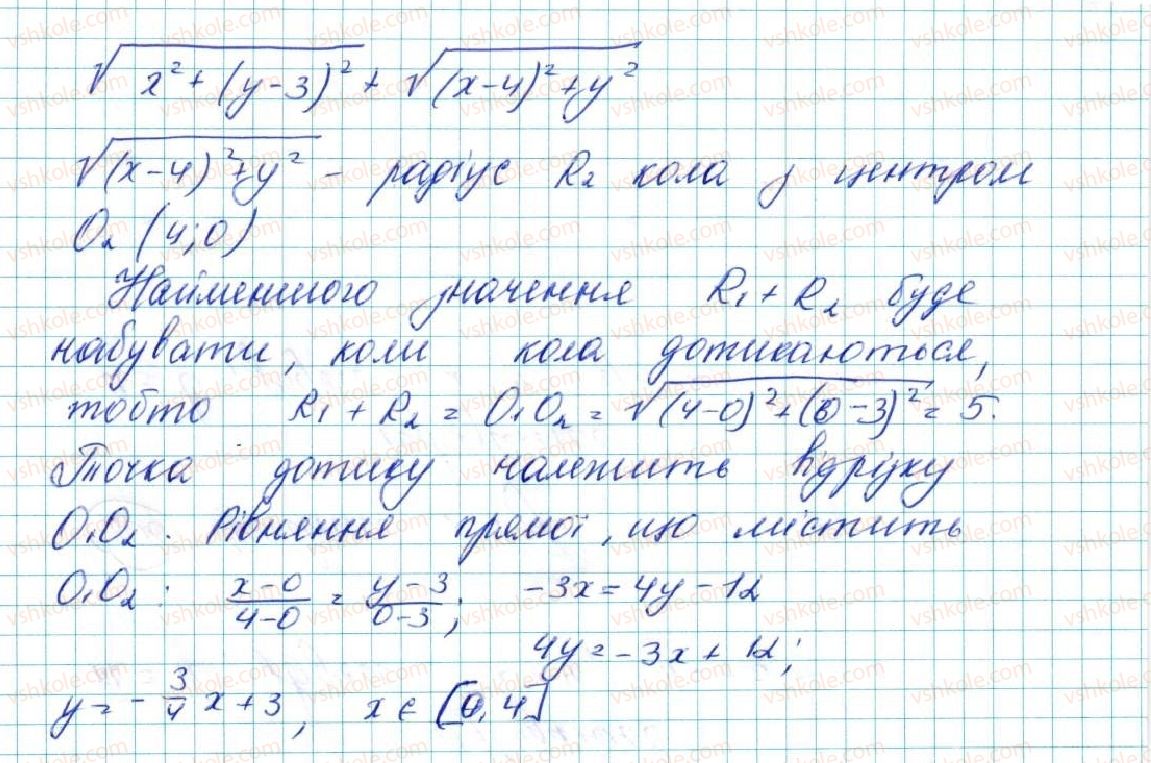 √(x² + (y-3)²) + √((x-4)² + y²)
√((x-4)² + y²) - радіус R₂ кола з центром
O₂ (4; 0)
Найменшого значення R₁ + R₂ буде
набувати, коли кола дотикаються,
тобто R₁ + R₂ = O₁O₂ = √((4-0)² + (0-3)²) = 5.
Точка дотику належить відрізку
O₁O₂. Рівняння прямої, що містить
O₁O₂: (x-0)/(4-0) = (y-3)/(0-3); -3x = 4y - 12
4y = -3x + 12;
y = -3/4 x + 3, x ∈ [0, 4]